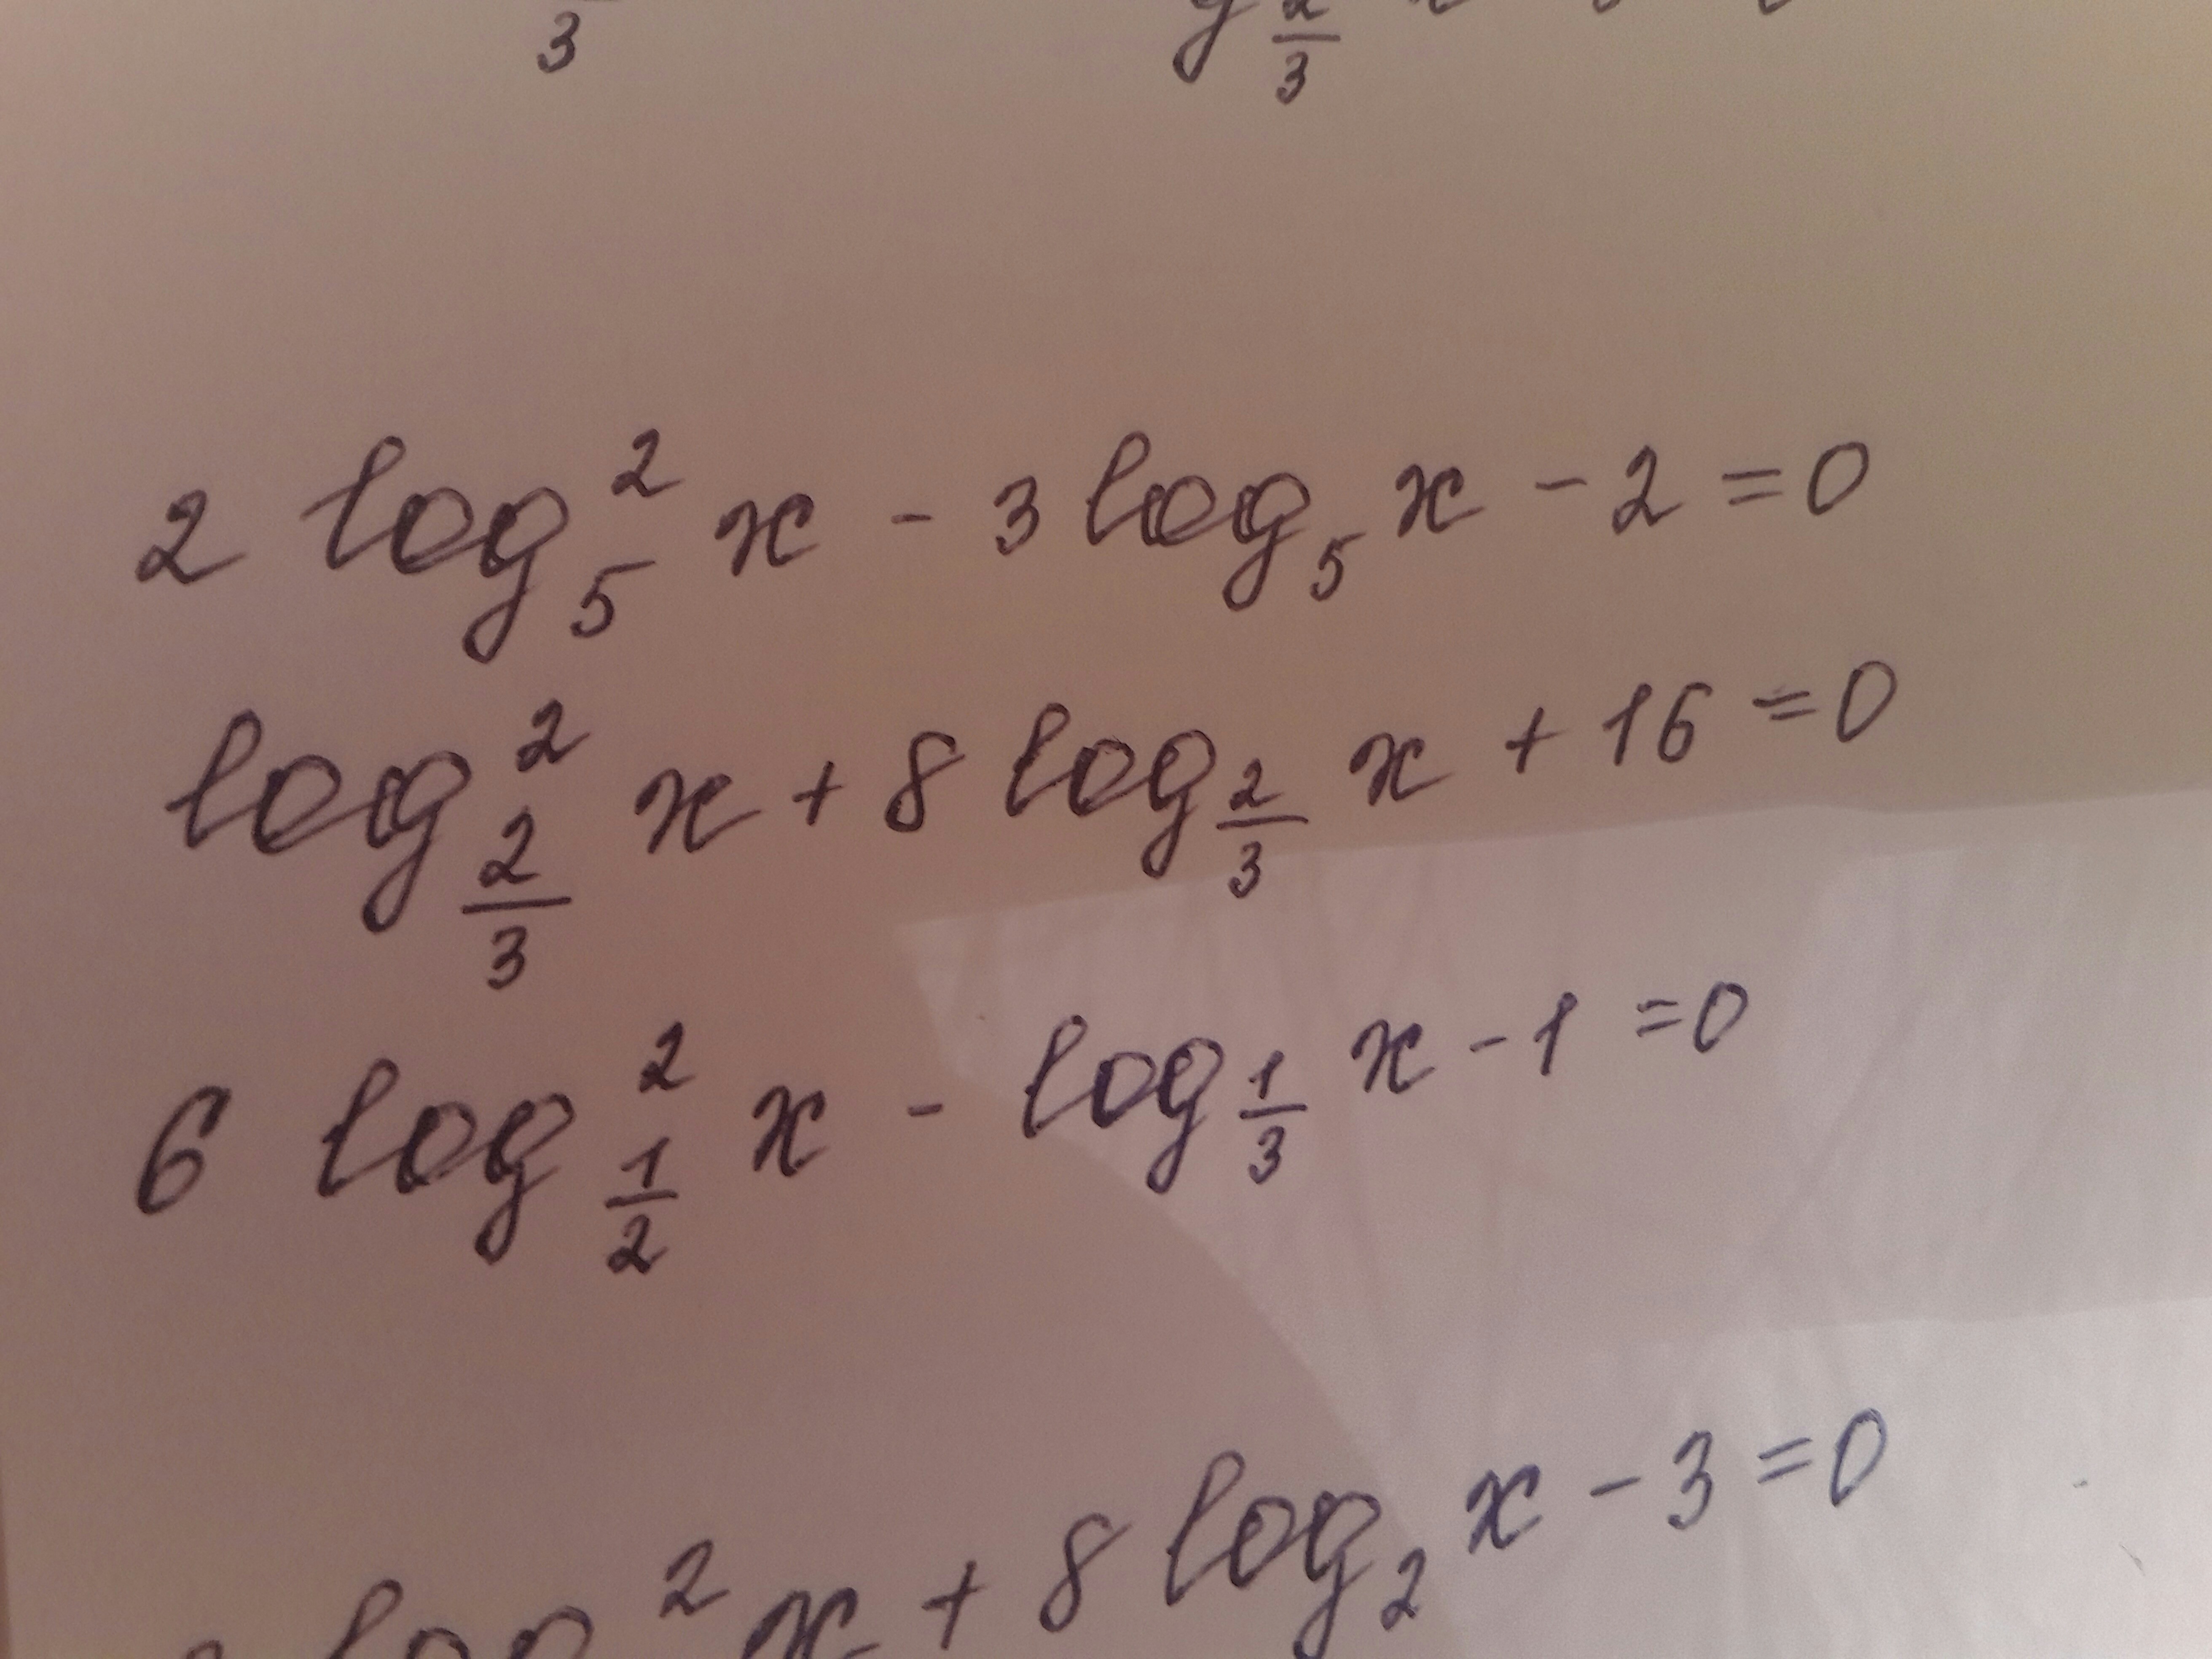 3 2/3
2 log₅² x - 3 log₅ x - 2 = 0
log²_{2/3} x + 8 log_{2/3} x + 16 = 0
6 log²_{1/2} x - log_{1/3} x - 1 = 0
log² x + 8 log₂ x - 3 = 0